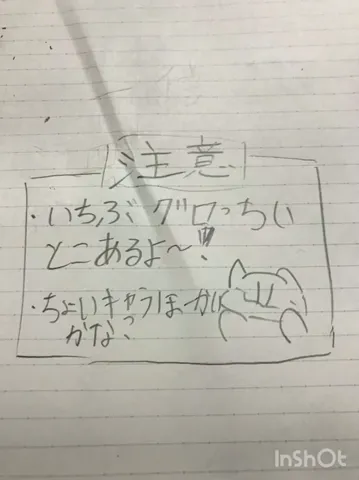 注意
・いちぶグロっちい
とこあるよ〜!!
・ちょいキャラほーかい
かな?
InShOt